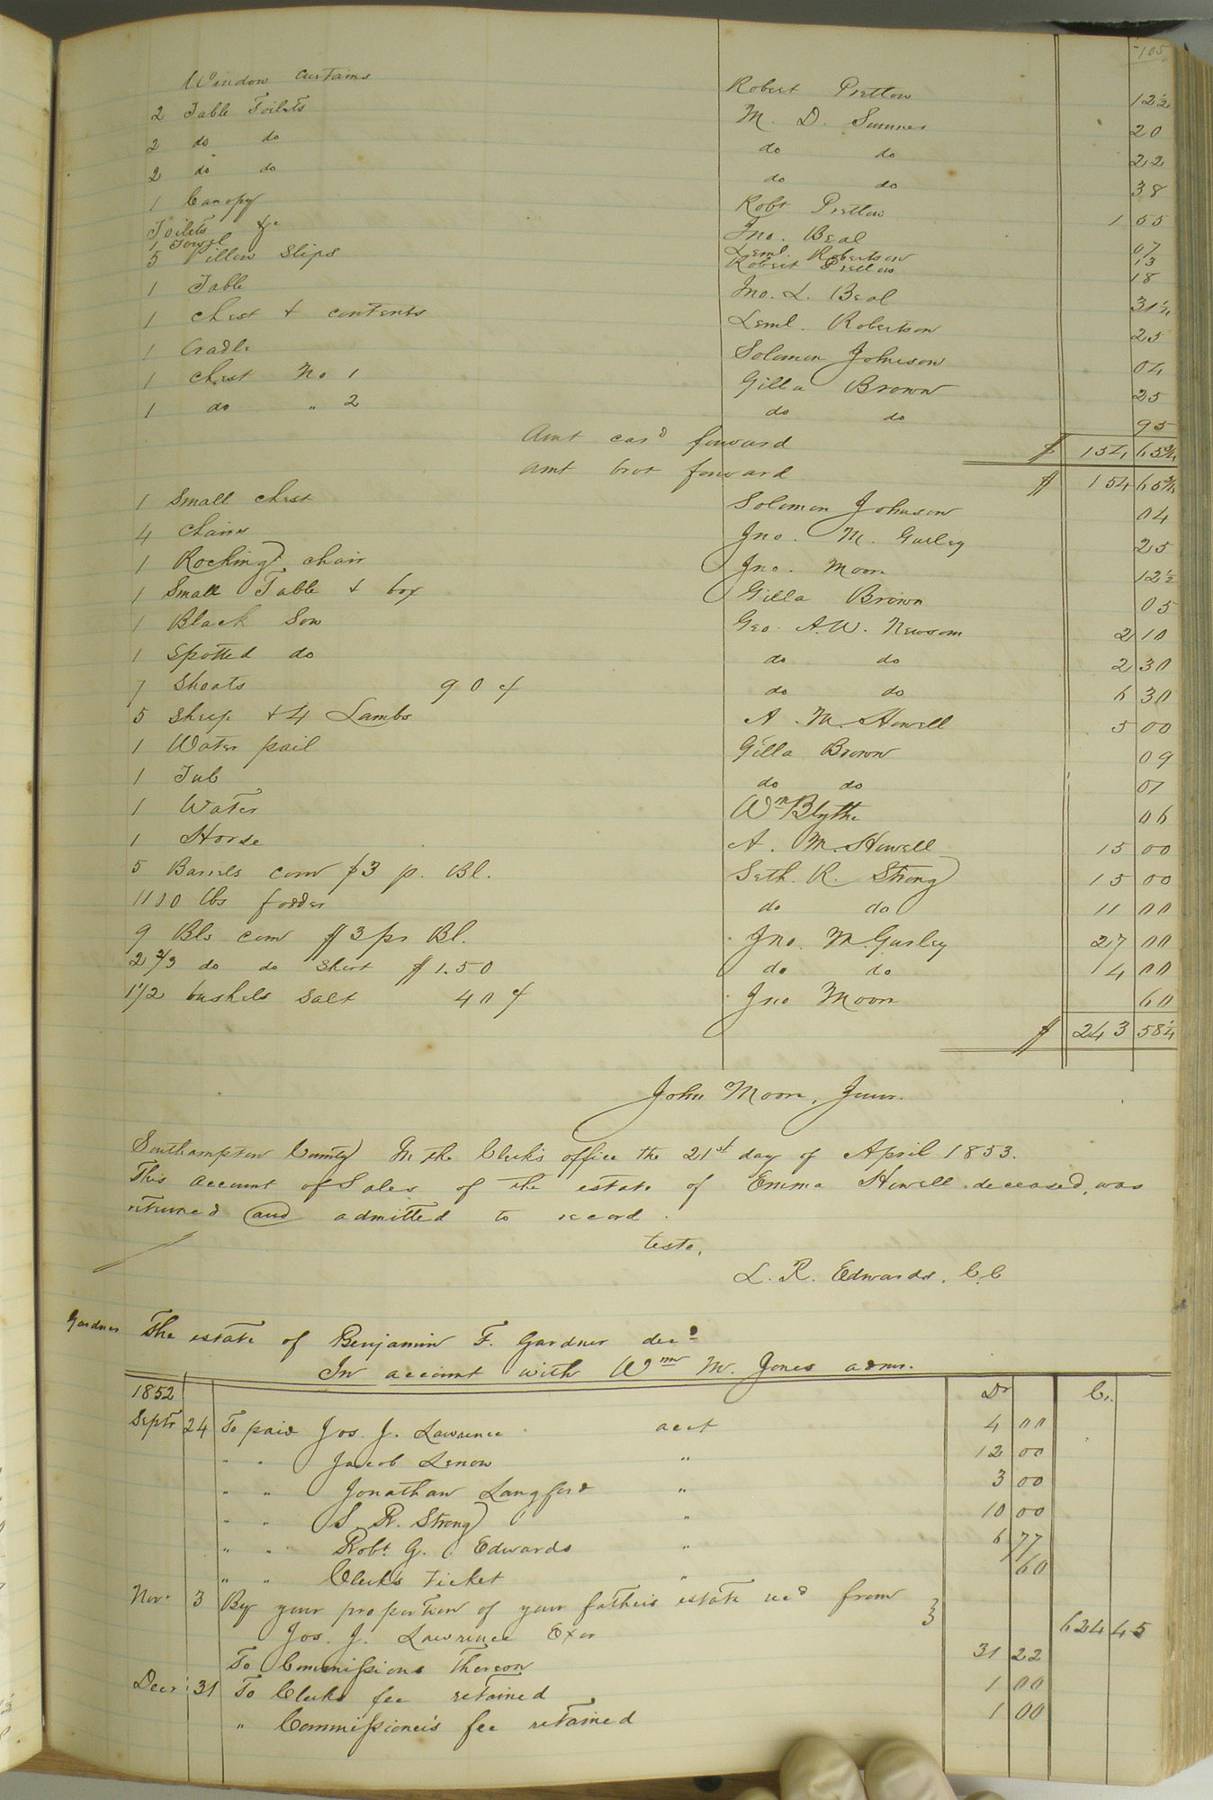 105
Window Curtains Robert Pretlow 12½
2 Table Toilets M. D. Sumner 20
2 do do do do 22
2 do do do do 38
1 Canopy Robt Pretlow 1 55
Toilets &c Jno. Beal 07
1 Towel Leml. Robertson 13
5 Pillow Slips Robert Pretlow 18
1 Table Jno. L. Beal 31¼
1 chest & contents Leml. Robertson 25
1 Cradle Solomon Johnson 04
1 chest No 1 Gilla Brown 25
1 do " 2 do do 95
Amt card forward $ 154 65¾
amt brot forward $ 154 65¾
1 Small chest Solomon Johnson 04
4 chairs Jno. M. Gurley 25
1 Rocking chair Jno. Moore 12½
1 Small Table & box Gilla Brown 05
1 Black Sow Geo. A. W. Newsom 2 10
1 Spotted do do do 2 30
7 Shoats 90 ¢ do do 6 30
5 Sheep & 4 Lambs A. M. Howell 5 00
1 Water pail Gilla Brown 09
1 Tub do do 07
1 Water Wm Blythe 06
1 Horse A. M. Howell 15 00
5 Barrels corn $3 p. Bl. Seth. R. Strong 15 00
1100 lbs fodder do do 11 00
9 Bls corn $3 pr Bl. Jno. M Gurley 27 00
2 2/3 do do Short $1.50 do do 4 00
1½ bushels Salt 40 ¢ Jno Moore 60
$ 243 58¼
John Moore, Junr.
Southampton County In the Clerk's office the 21st day of April 1853.
This account of Sales of the estate of Emma Howell deceased, was
returned and admitted to record.
teste,
L. R. Edwards. C.C
Gardner The estate of Benjamin F. Gardner decd
In account with Wm M. Jones admr.
1852 Dr Cr.
Septr 24 To paid Jos. J. Lawrence acct 4 00
" " Jacob Lenow " 12 00
" " Jonathan Langford " 3 00
" " S. R. Strong " 10 00
" " Robt. G. C. Edwards " 6 77
" " Clerk's ticket " 60
Novr 3 By your proportion of your father's estate recd from
Jos. J. Lawrence Exor 624 45
To Commissions Thereon 31 22
Decr 31 To Clerks fee retained 1 00
" Commissioner's fee retained 1 00